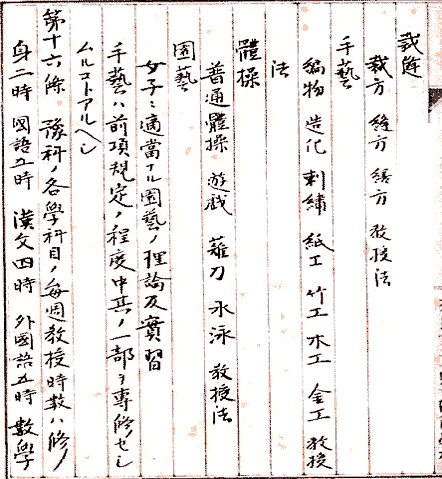 裁縫
裁方 縫方 繕方 教授法
手藝
編物 造花 刺繡 紙工 竹工 木工 金工 教授
法
體操
普通體操 遊戯 薙刀 水泳 教授法
園藝
女子ニ適當ナル園藝ノ理論及實習
手藝ハ前項規定ノ程度中其ノ一部ヲ專修セシ
ムルコトアルヘシ
第十六條 豫科ノ各學科目ノ每週教授時數ハ修
身二時 國語五時 漢文四時 外國語五時 數學